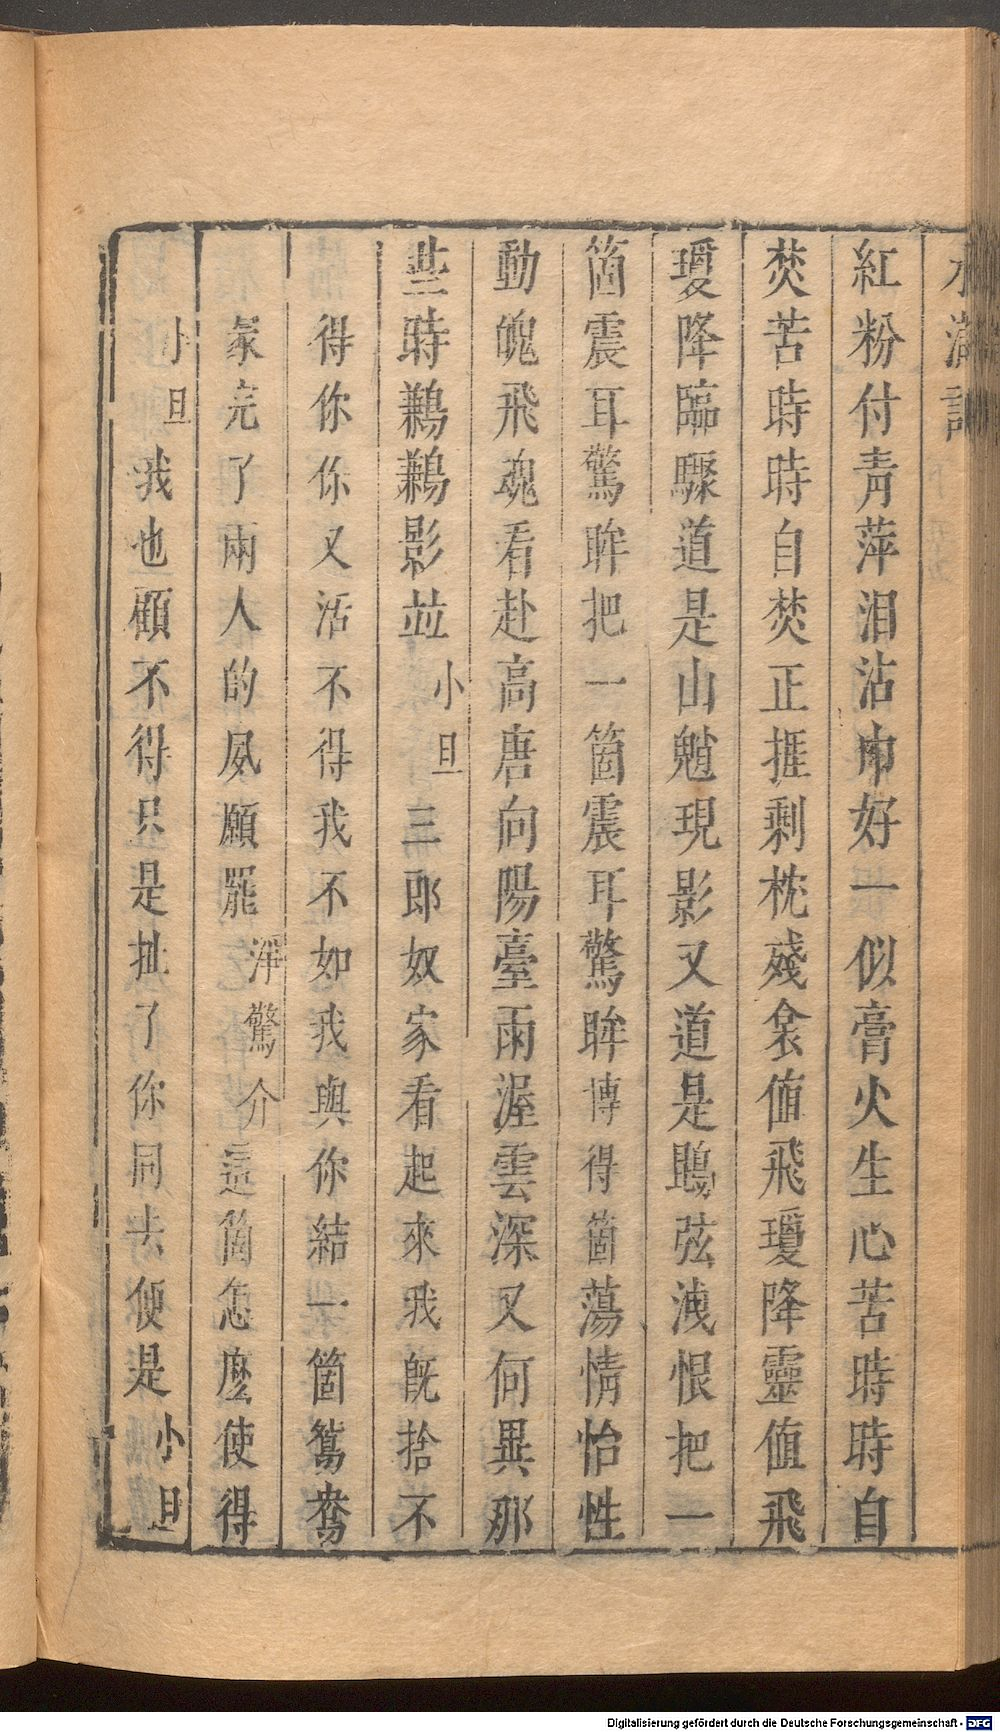 水滸記
紅粉付青萍泪沾巾好一似膏火生心苦時時自
焚苦時時自焚正捱剩枕殘衾値飛瓊降靈値飛
瓊降臨驟道是山魈現影又道是鵾弦洩恨把一
箇震耳驚眸把一箇震耳驚眸博得箇蕩情怡性
動魄飛魂看赴高唐向陽臺雨渥雲深又何異那
些時鶼鶼影並小旦三郎奴家看起來我旣捨不
得你你又活不得我不如我與你結一箇鴛鴦
冢完了兩人的夙願罷淨驚介這箇怎麼使得
小旦我也顧不得只是扯了你同去便是小旦
Digitalisierung gefördert durch die Deutsche Forschungsgemeinschaft - DFG